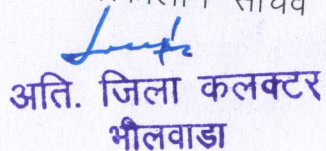 सचिव
अति. जिला कलक्टर
भीलवाडा